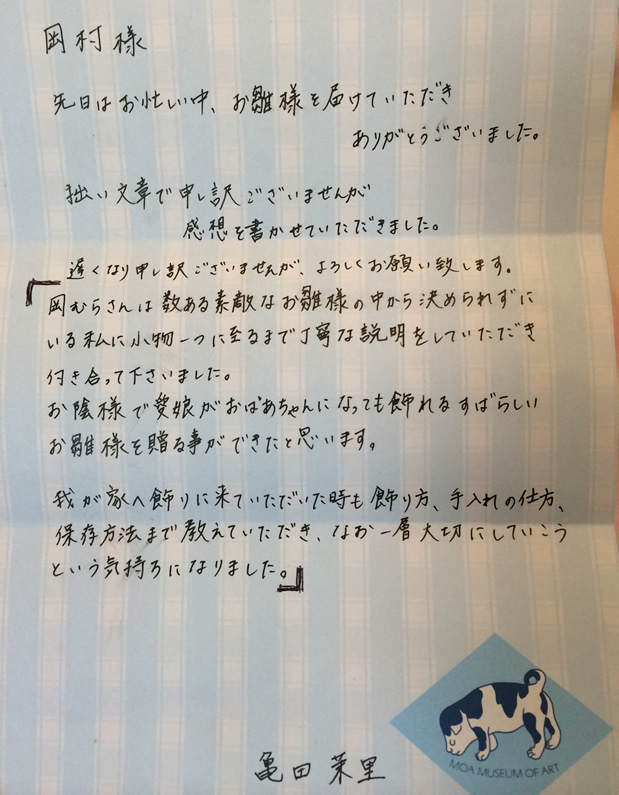 岡村様
先日はお忙しい中、お雛様を届けていただき
ありがとうございました。
拙い文章で申し訳ございませんが
感想を書かせていただきました。
遅くなり申し訳ございませんが、よろしくお願い致します。
「岡むらさんは数ある素敵なお雛様の中から決められずに
いる私に小物一つに至るまで丁寧な説明をしていただき
付き合って下さいました。
お陰様で愛娘がおばあちゃんになっても飾れるすばらしい
お雛様を贈る事ができたと思います。
我が家へ飾りに来ていただいた時も飾り方、手入れの仕方、
保存方法まで教えていただき、なお一層大切にしていこう
という気持ちになりました。」
MOA MUSEUM OF ART
亀田茉里